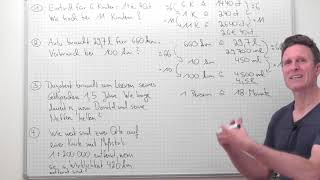 ① Eintritt für 6 Kinder: 14.40 €
Wie hoch bei 11 Kindern?
6 K ≙ 1440 ct
1 K ≙ 240 ct
11 K ≙ 2640 ct
② Auto braucht 29,7 l für 660 km.
Verbrauch bei 100 km?
660 km ≙ 29,7 l
≙ 29700 ml
10 km ≙ 450 ml
100 km ≙ 4500 ml
≙ 4,5 l
③ Dagobert braucht zum Leeren seines
1,5 Jahre. Wie lange
dauert es, wenn Donald und seine
Neffen helfen?
1 Person ≙ 18 Monate
④ Wie weit sind zwei Orte auf
einer Karte mit Maßstab
1 : 200 000 entfernt, wenn
sie in Wirklichkeit 420 km
entfernt sind?